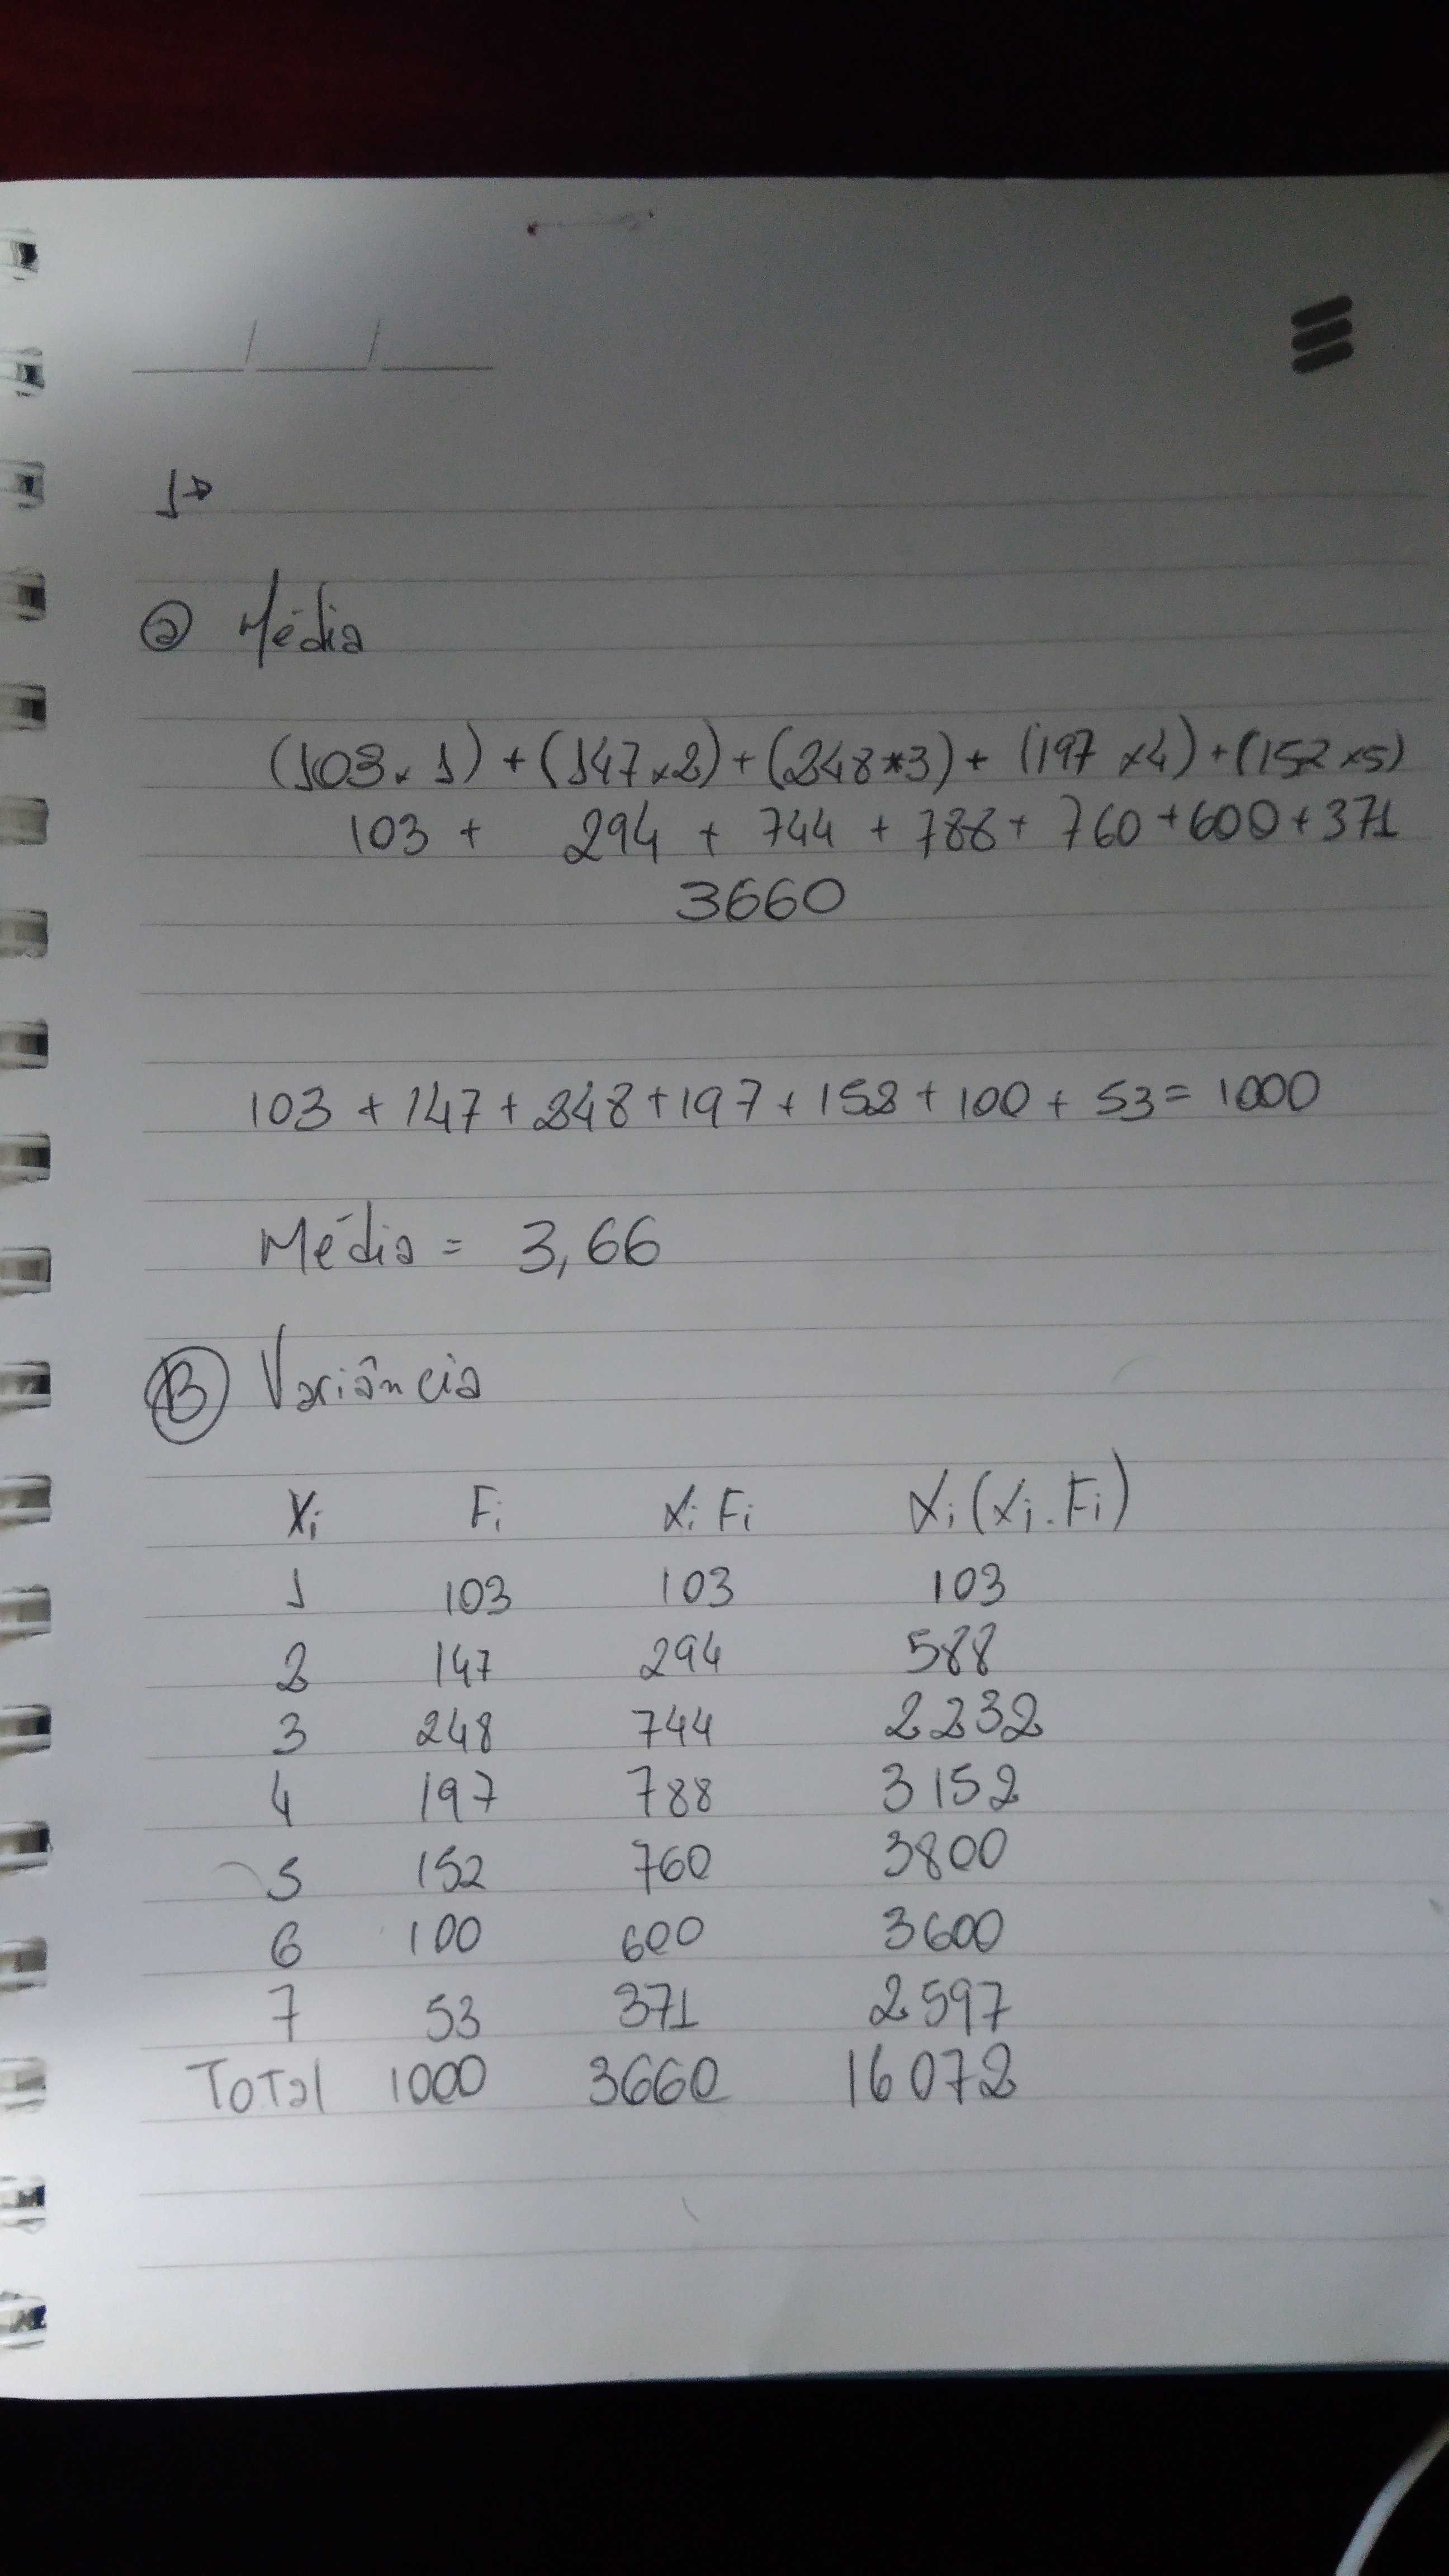 1→
a Média
(103 x 1) + (147 x 2) + (248 * 3) + (197 x 4) + (152 x 5)
103 + 294 + 744 + 788 + 760 + 600 + 371
3660
103 + 147 + 248 + 197 + 152 + 100 + 53 = 1000
Média = 3,66
B Variância
Xi Fi Xi Fi Xi (Xi . Fi)
1 103 103 103
2 147 294 588
3 248 744 2232
4 197 788 3152
5 152 760 3800
6 100 600 3600
7 53 371 2597
Total 1000 3660 16072